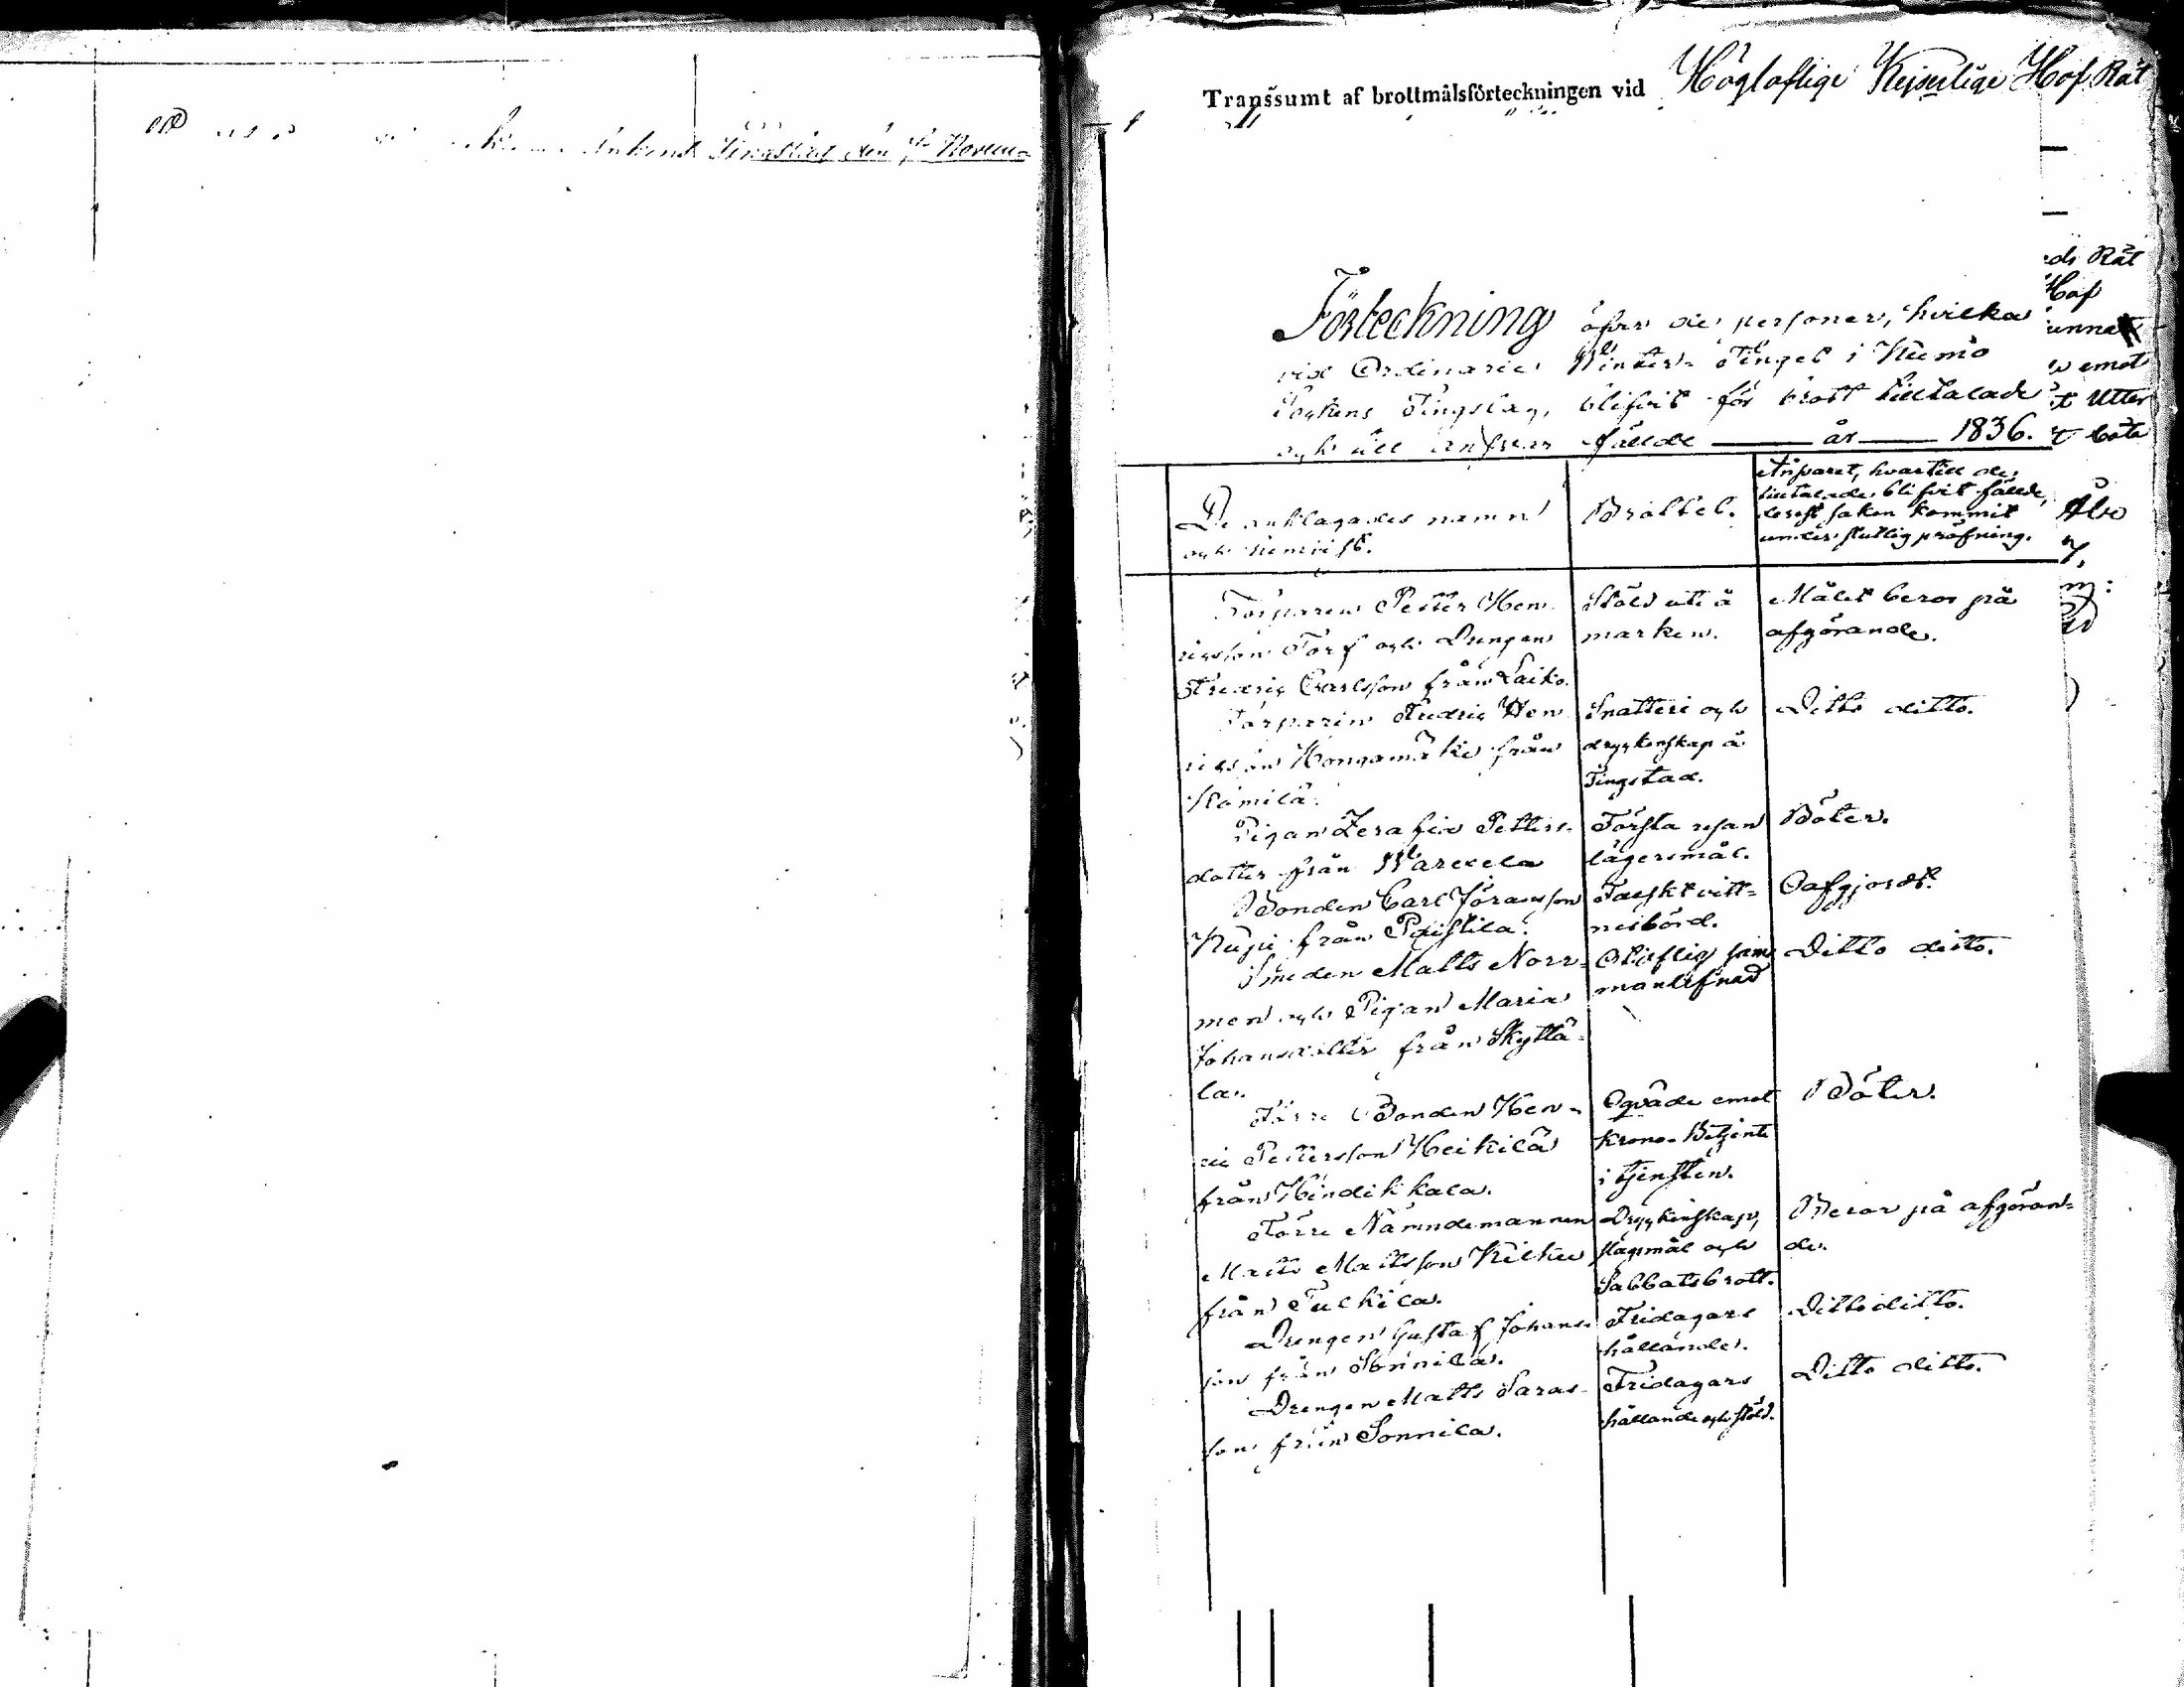 Sokens Tingslag den Novem=
Transsumt af brottmålsförteckningen vid Högloflige Kejserlige Hof Rät
Förteckning öfver de personer, hvilka
vid Ordinarie Winter-Tinget i Kumo
Sockens Tingslag, blifvit för brott tilltalade
och till ansvar fällde — år — 1836.
De anklagades namn
och hemvist.
Brottet.
Ansvaret, hvartill de
tilltalade blifvit fällde,
derest saken kommit
under slutlig pröfning.
Torparen Petter Hen-
ricsson Torf och Drengen
Fredric Carlsson från Laiko.
Stöld ute å
marken.
Målet beror på
afgörande.
Torparen Fredric Hen
ricsson Hongamäki från
Kömilä.
Snatteri och
dryckenskap å
Tingstad.
Ditto ditto.
Pigan Serafia Petters-
dotter från Warecla
Första resan
lägersmål.
Böter.
Bonden Carl Jöransson
Knpi från Paistila.
Falskt vitt=
nesbörd.
Oafgjordt.
Smeden Matts Norr=
men och Pigan Maria
Johansdotter från Skyttä-
la.
Oloflig sam
manlefnad
Ditto ditto.
Förre Bonden Hen=
ric Pettersson Heikilä
från Hindikkala.
Oqväde emot
Krono-Betjente
i tjensten.
Böter.
Förre Nämndemannen
Matts Mattsson Kilku
från Pulkila.
Dryckenskap,
slagsmål och
Sabbatsbrott.
Beror på afgöran=
de.
Drengen Gustaf Johans-
son från Sonnila.
Fridagars
hållande.
Ditto ditto.
Drengen Matts Saras-
son från Sonnila.
Fridagars
hållande och stöld.
Ditto ditto.
Rät
Hof
emot
Utter
böta
Åbo